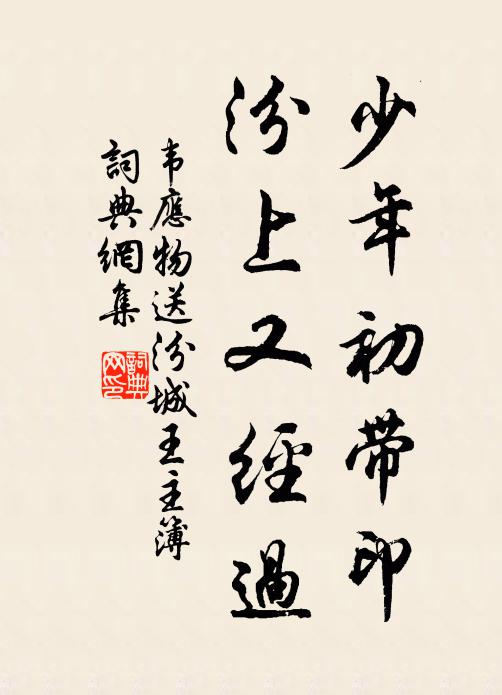 少年初带印
汾上又經過
韦應物送汾城王主簿
詞典網集
詞典網印